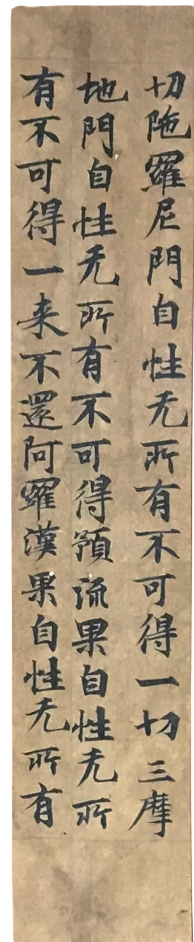 切陁羅尼門自性无所有不可得一切三摩
地門自性无所有不可得預流果自性无所
有不可得一来不還阿羅漢果自性无所有